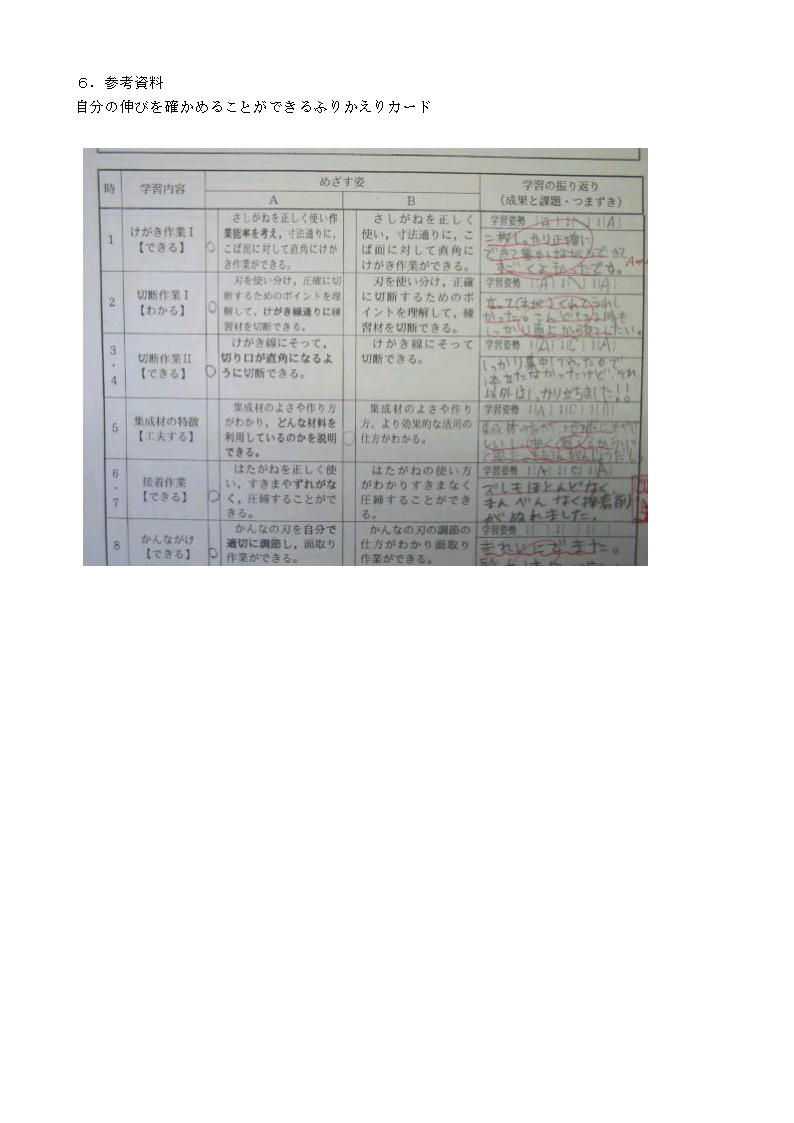 6．参考資料
自分の伸びを確かめることができるふりかえりカード
時
学習内容
めざす姿
A
B
学習の振り返り
（成果と課題・つまずき）
1
けがき作業Ⅰ
【できる】
さしがねを正しく使い作
業能率を考え，寸法通りに，
こば面に対して直角にけが
き作業ができる。
さしがねを正しく
使い，寸法通りに，こ
ば面に対して直角に
けがき作業ができる。
学習姿勢
すごくよかったです。
2
切断作業Ⅰ
【わかる】
刃を使い分け，正確に切
断するためのポイントを理
解して，けがき線通りに練
習材を切断できる。
刃を使い分け，正確
に切断するためのポ
イントを理解して，練
習材を切断できる。
学習姿勢
3・4
切断作業Ⅱ
【できる】
けがき線にそって，
切り口が直角になるよ
うに切断できる。
けがき線にそって
切断できる。
学習姿勢
しっかり集中してやったので
以外はしっかり立ちました!!
5
集成材の特徴
【工夫する】
集成材のよさや作り方
がわかり，どんな材料を
利用しているのかを説明
できる。
集成材のよさや作り
方、より効果的な活用の
仕方がわかる。
学習姿勢
6・7
接着作業
【できる】
はたがねを正しく使
い，すきまやずれがな
く，圧締することがで
きる。
はたがねの使い方
がわかりすきまなく
圧締することができ
る。
学習姿勢
ズレもほとんどなく、
まんべんなく接着剤
がぬれました。
8
かんながけ
【できる】
かんなの刃を自分で
適切に調節し，面取り
作業ができる。
かんなの刃の調節の
仕方がわかり面取り
作業ができる。
学習姿勢
きれいにできました。